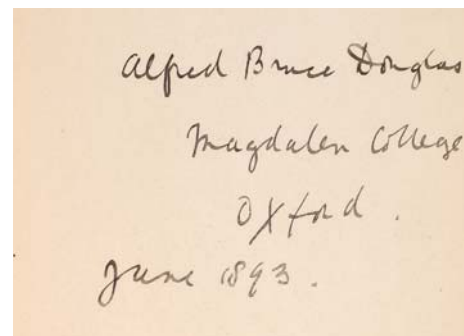 Alfred Bruce Douglas
Magdalen College
Oxford.
June 1893.